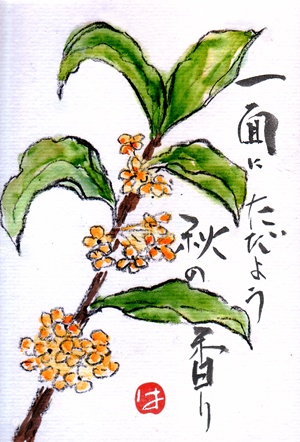 一面に
ただよう
秋の
香り
は